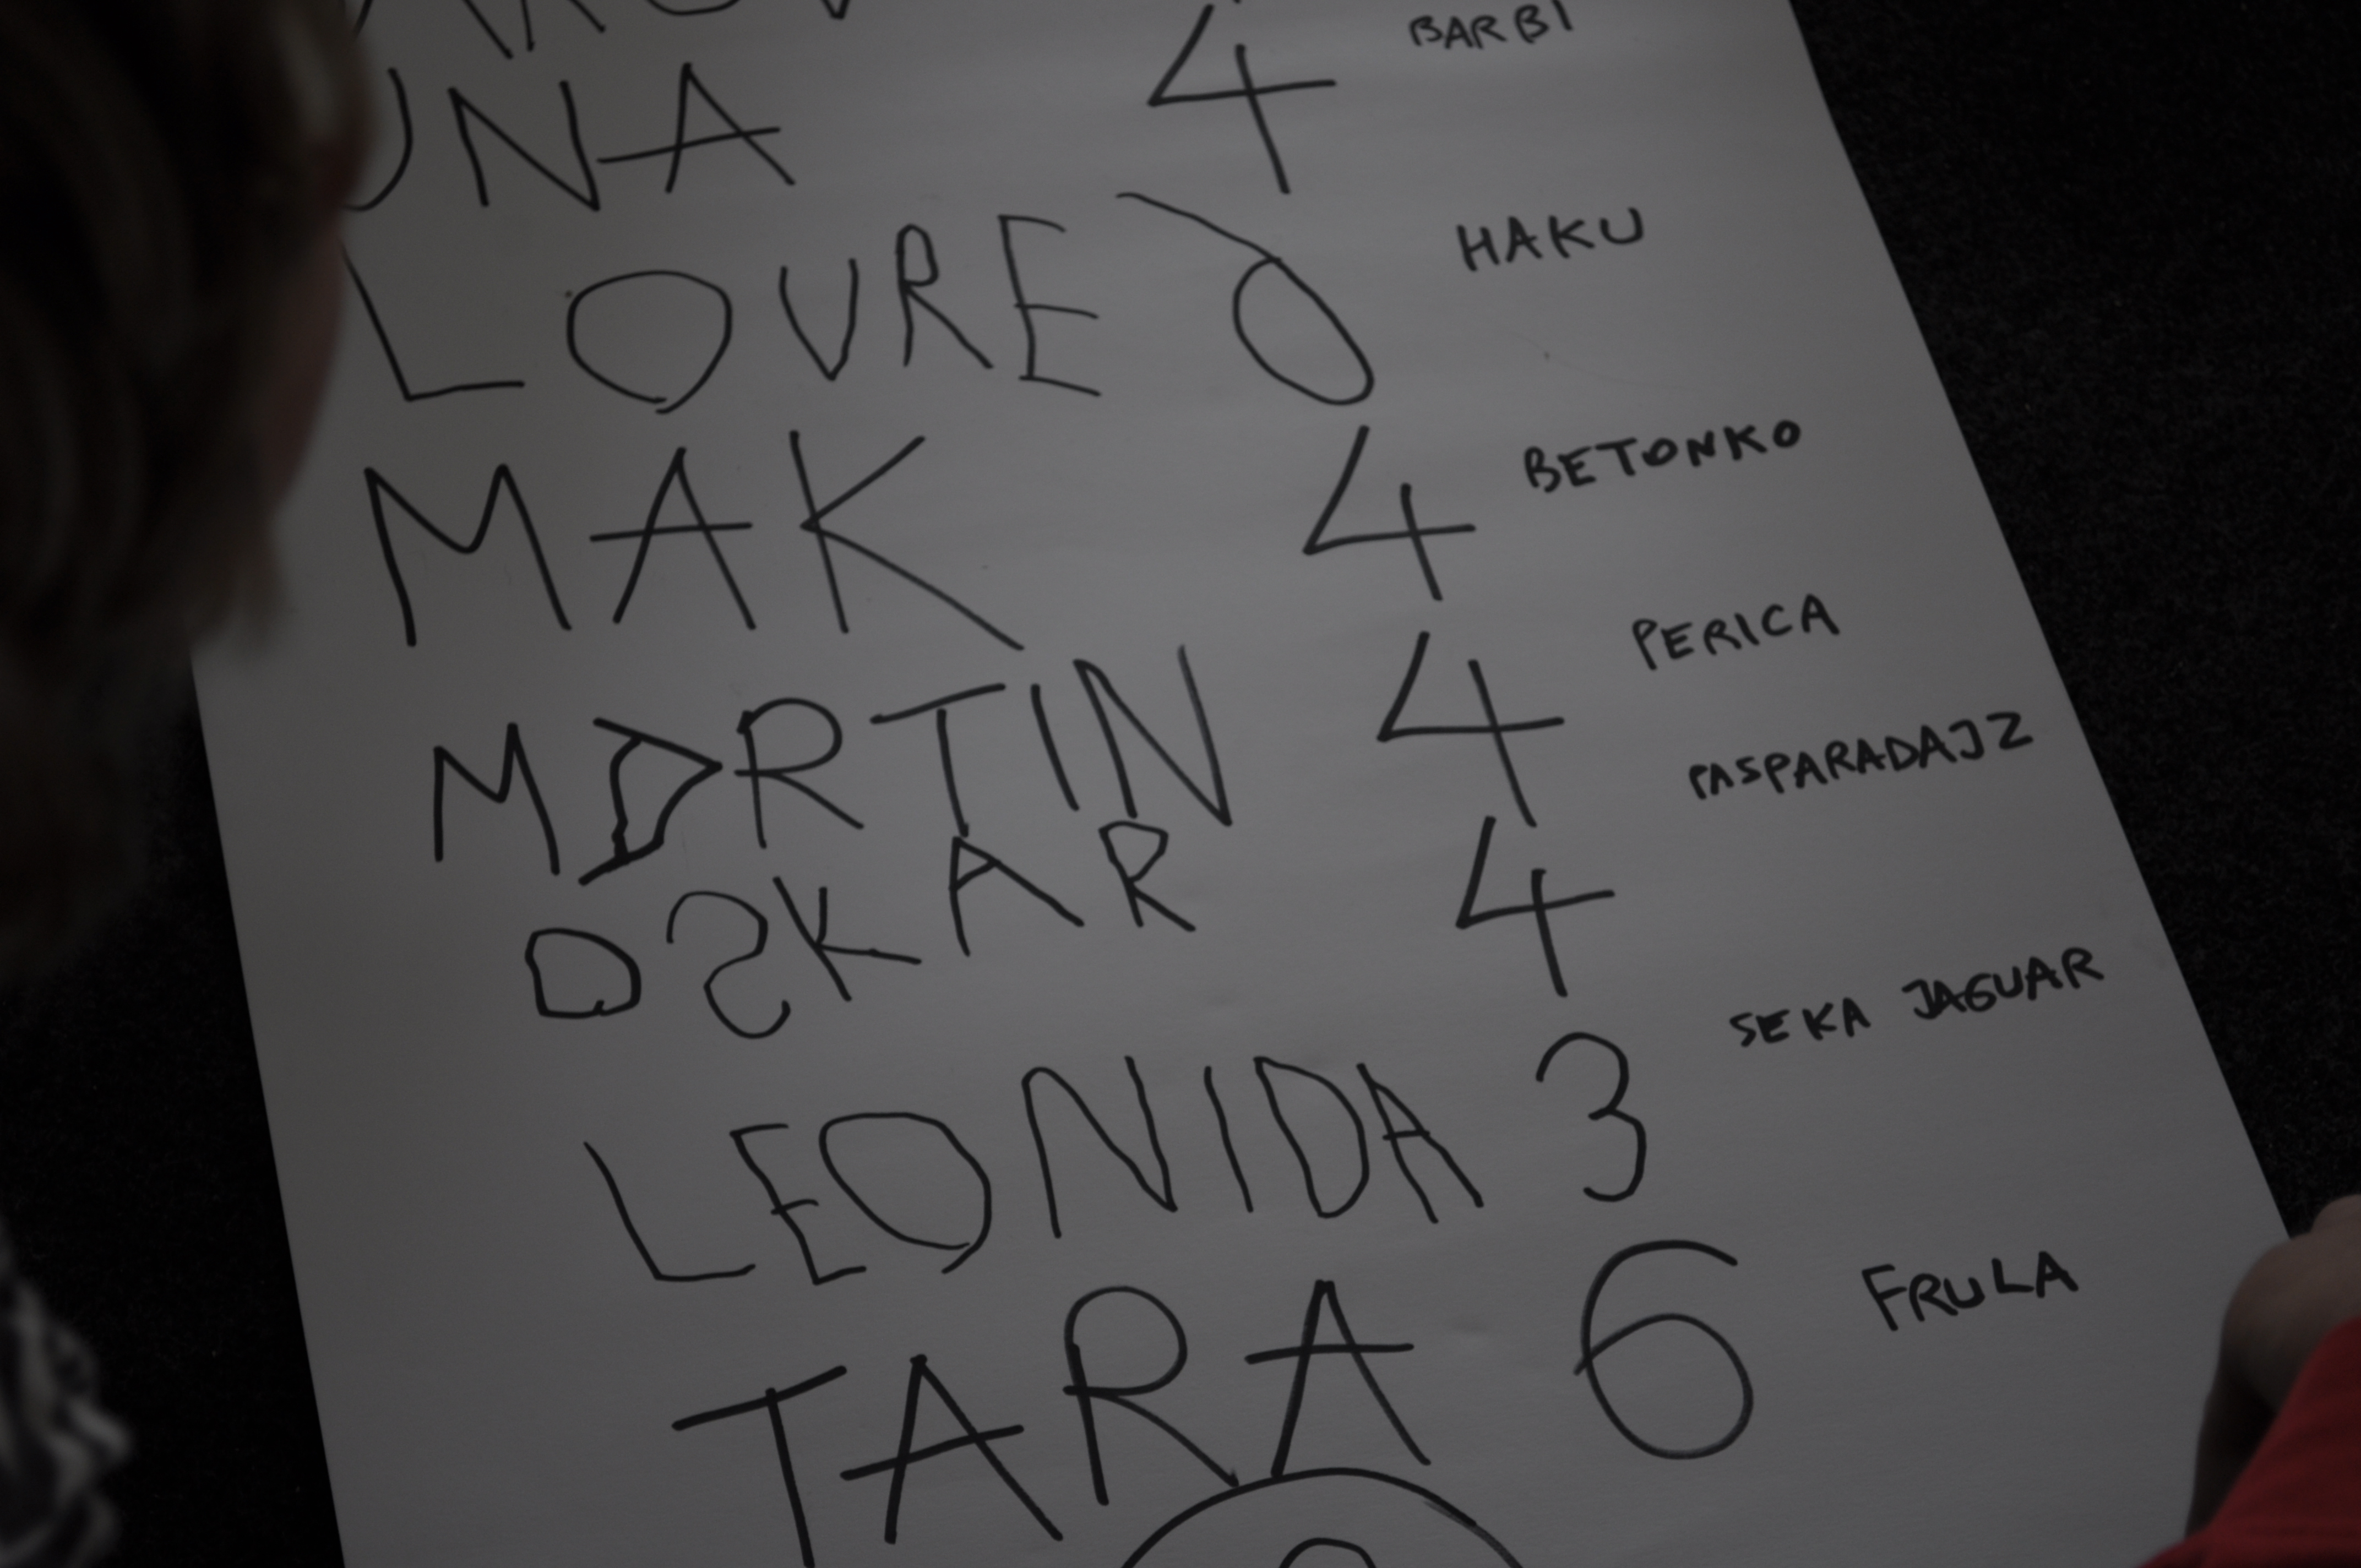 UNA 4 BARBI
LOVRE 6 HAKU
MAK 4 BETONKO
MARTIN 4 PERICA
OSKAR 4 PASPARADAJZ
LEONIDA 3 SEKA JAGUAR
TARA 6 FRULA